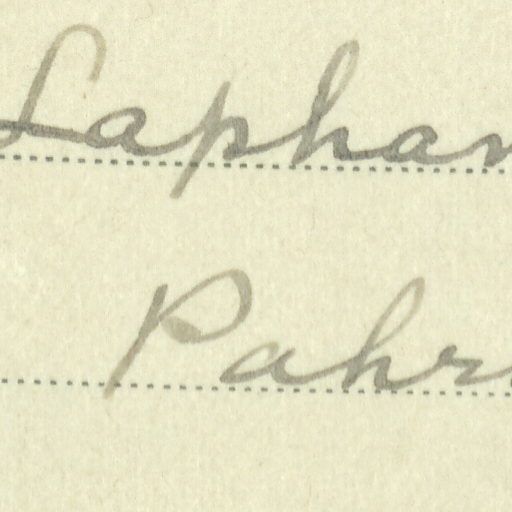 Lapham
Pahr